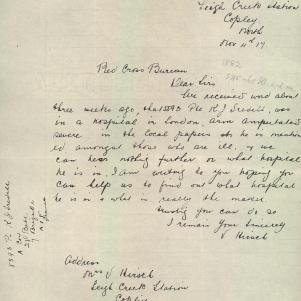 Leigh Creek Station
Copley
North
Nov 11th 17
Red Cross Bureau
Dear Sirs
We received word about
three weeks ago, that 5893 Pte R. J. was
in a hospital in London. Arm amputated
severe in the local papers he is mention
ed amongst those who are ill, & we
can hear nothing further or what hospital
he is in. I am writing to you hoping you
can help us to find out what hospital
he is in & what is really the matter.
Trusting you can do so
I remain Yours Sincerely
V Hirsch
Address
Mrs V Hirsch
Leigh Creek Station
Copley